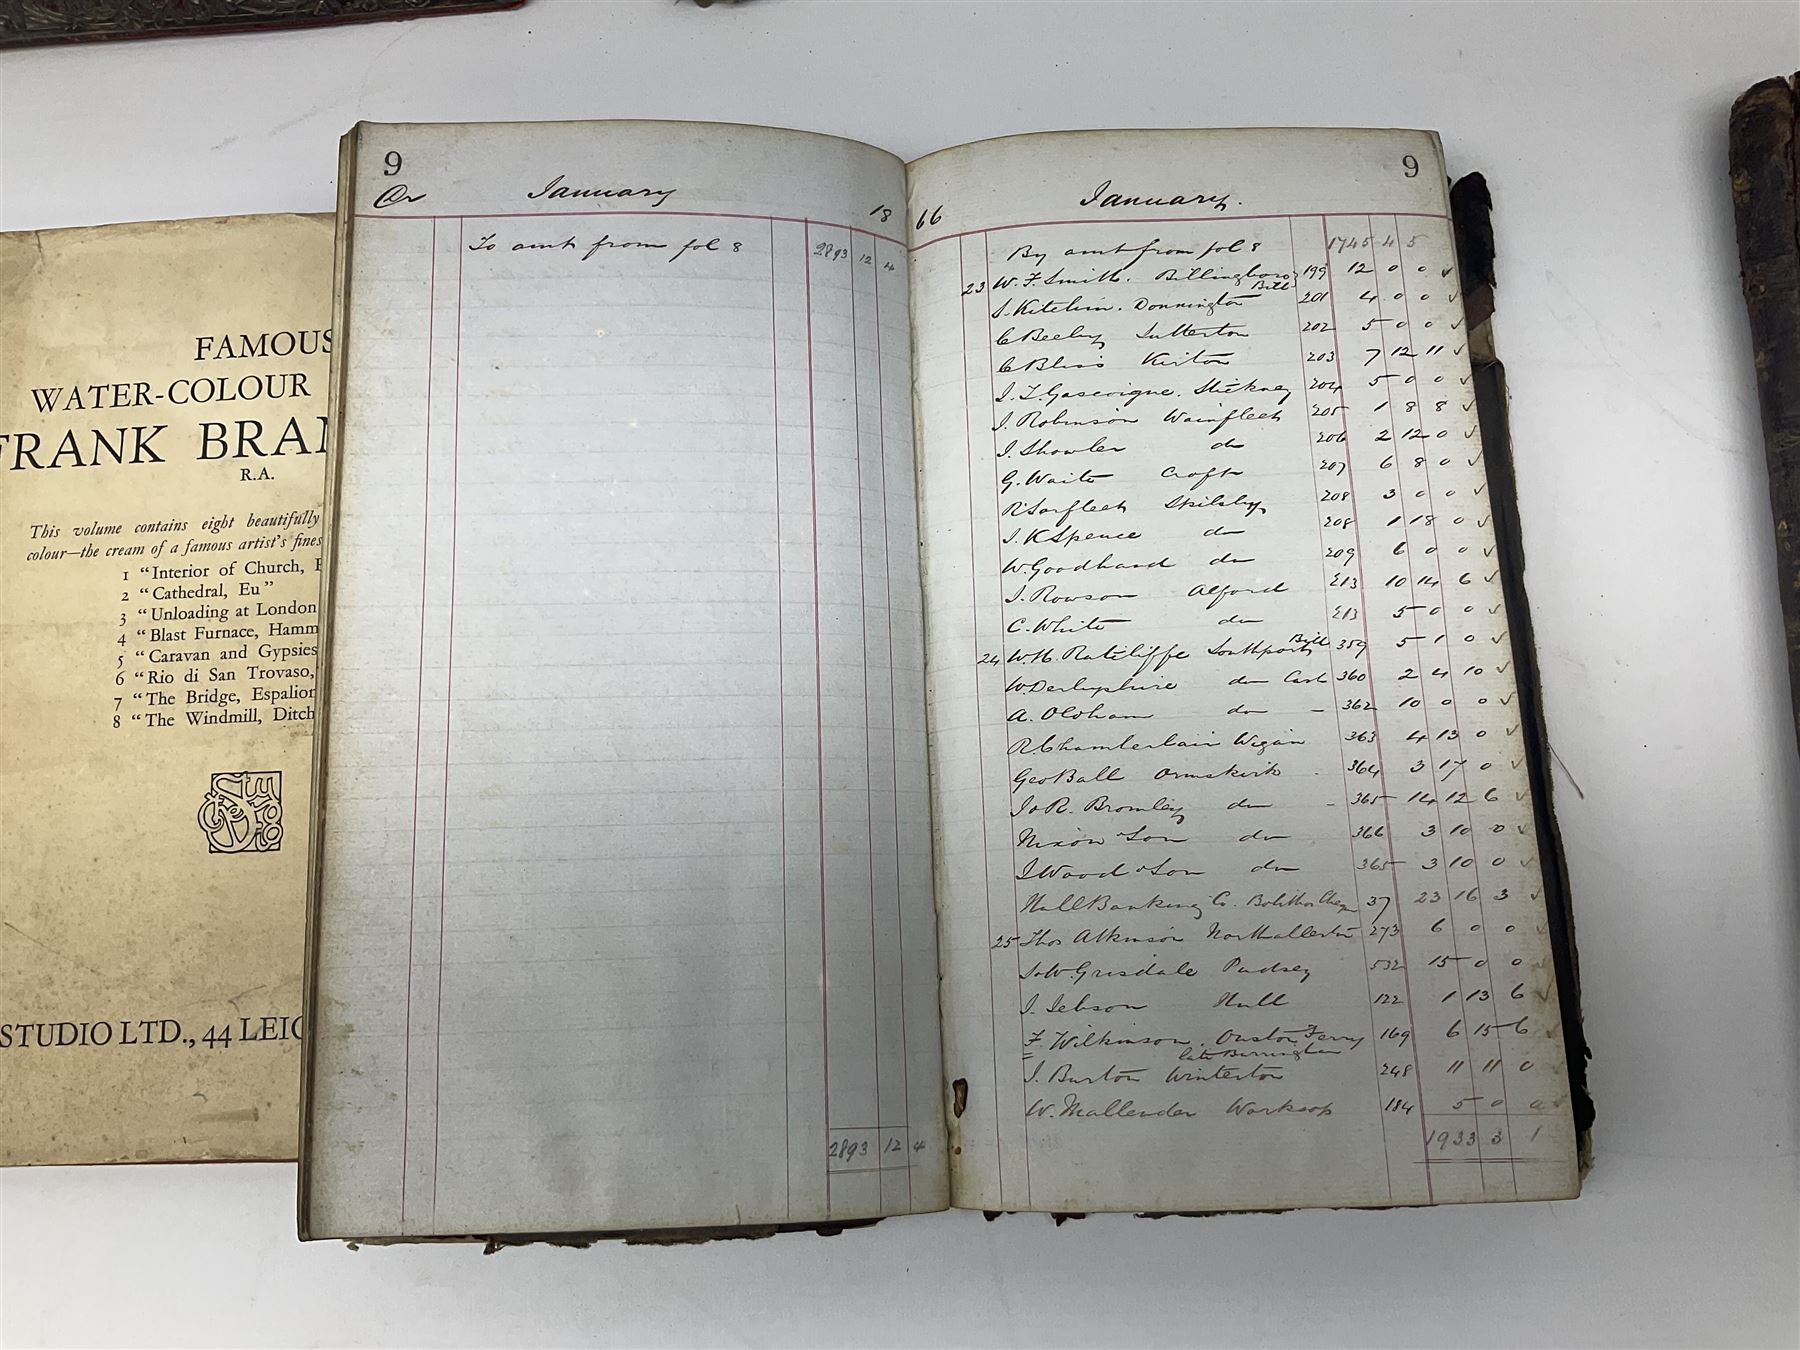 FAMOUS
WATER-COLOUR
FRANK BRAN
R.A.
This volume contains eight beautifully
colour—the cream of a famous artist's fines
1 "Interior of Church,
2 "Cathedral, Eu"
3 "Unloading at London
4 "Blast Furnace, Hamm
5 "Caravan and Gypsies
6 "Rio di San Trovaso,
7 "The Bridge, Espalion
8 "The Windmill, Ditch
STUDIO LTD., 44 LEIC
9
Dr January 18
To amt from fol 8 2893 12 4
2893 12 4
9
66 January.
By amt from fol 8 1745 4 5
23 W. F. Smith. Billingboro 199 12 0 0 ✓
Bill
S. Kitchin. Donnington 201 4 0 0 ✓
C Beeley Sutterton 202 5 0 0 ✓
C Bliss Kirton 203 7 12 11 ✓
J. T. Gascoigne. Stickney 204 5 0 0 ✓
J. Robinson Wainfleet 205 1 8 8 ✓
J. Showler do 206 2 12 0 ✓
G. Waite Croft 207 6 8 0 ✓
R Sarfleet Skilsby 208 3 0 0 ✓
J. K Spence do 208 1 18 0 ✓
W. Goodhand do 209 6 0 0 ✓
J. Rowson Alford 213 10 14 6 ✓
C. White do 213 5 0 0 ✓
24 W. H. Ratcliffe Southport Bill 359 5 1 0 ✓
W. Derbyshire do Cash 360 2 4 10 ✓
A. Oldham do – 362 10 0 0 ✓
R. Chamberlain Wigan 363 4 13 0 ✓
Geo Ball Ormskirk 364 3 17 0 ✓
J & R. Bromley do – 365 14 12 6 ✓
Nixon & Son do 366 3 10 0 ✓
J Wood & Son do 365 3 10 0 ✓
Hull Banking Co. 37 23 16 3 ✓
25 Thos Atkinson Northallerton 273 6 0 0 ✓
J & W. Grisdale Pudsey 532 15 0 0 ✓
J. Jebson Hull 122 1 13 6 ✓
F. Wilkinson. Owston Ferry 169 6 15 6 ✓
late
J. Burton Winterton 248 11 11 0 ✓
W. Mallender Worksop 184 5 0 0 ✓
1933 3 1